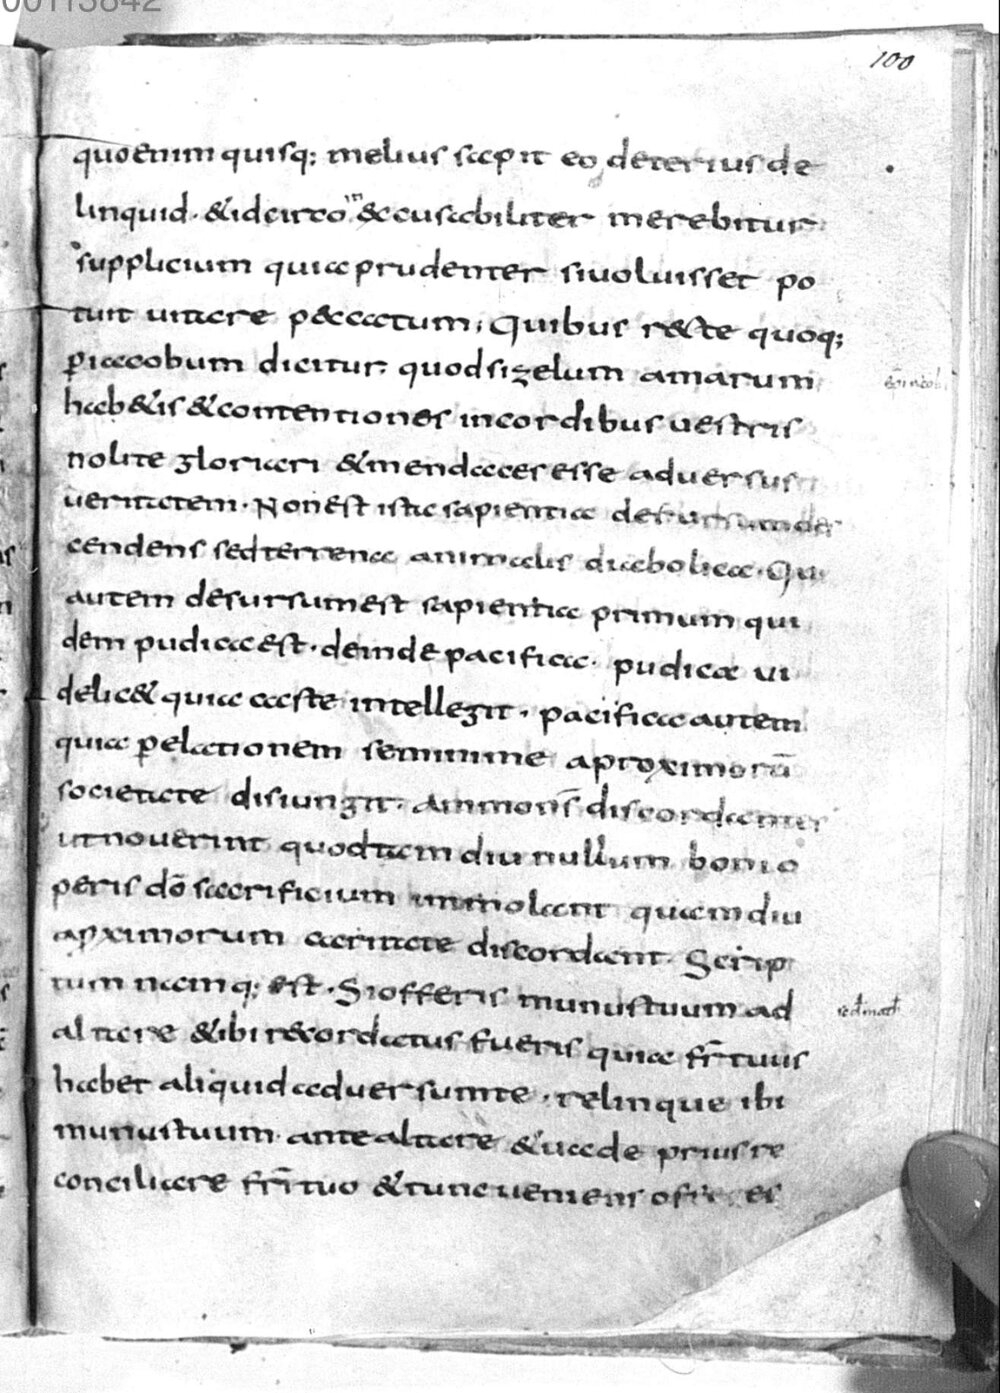 00113842
100
quo enim quisq; melius sapit eo deterius de
linquid. & idcirco in&cusabiliter merebitur
supplicium quia prudenter si voluisset po
tuit vitare p&catum. Quibus recte quoq;
p iacobum dicitur. quod si zelum amarum
hab&is & contentiones in cordibus vestris
nolite gloriari & mendaces esse adversus
veritatem. Non est istic sapientia desursum des
cendens sed terrena animalis diabolica. Qui
autem desursum est sapientia primum qui
dem pudica est. deinde pacifica. pudica vi
delic& quia caste intellegit. pacifica autem
quia p elationem se minime a proximorū
societate disiungit. Ammoneñs discordantes
ut noverint quod tam diu nullum boni o
peris dō sacrificium immolant quam diu
a pximorum caritate discordant. Scrip
tum namq; est. Si offeris munus tuum ad
altare & ibi recordatus fueris quia fr̄ tuus
habet aliquid adversum te. relinque ibi
munus tuum ante altare & vade prius re
conciliare fr̄i tuo & tunc veniens offeres